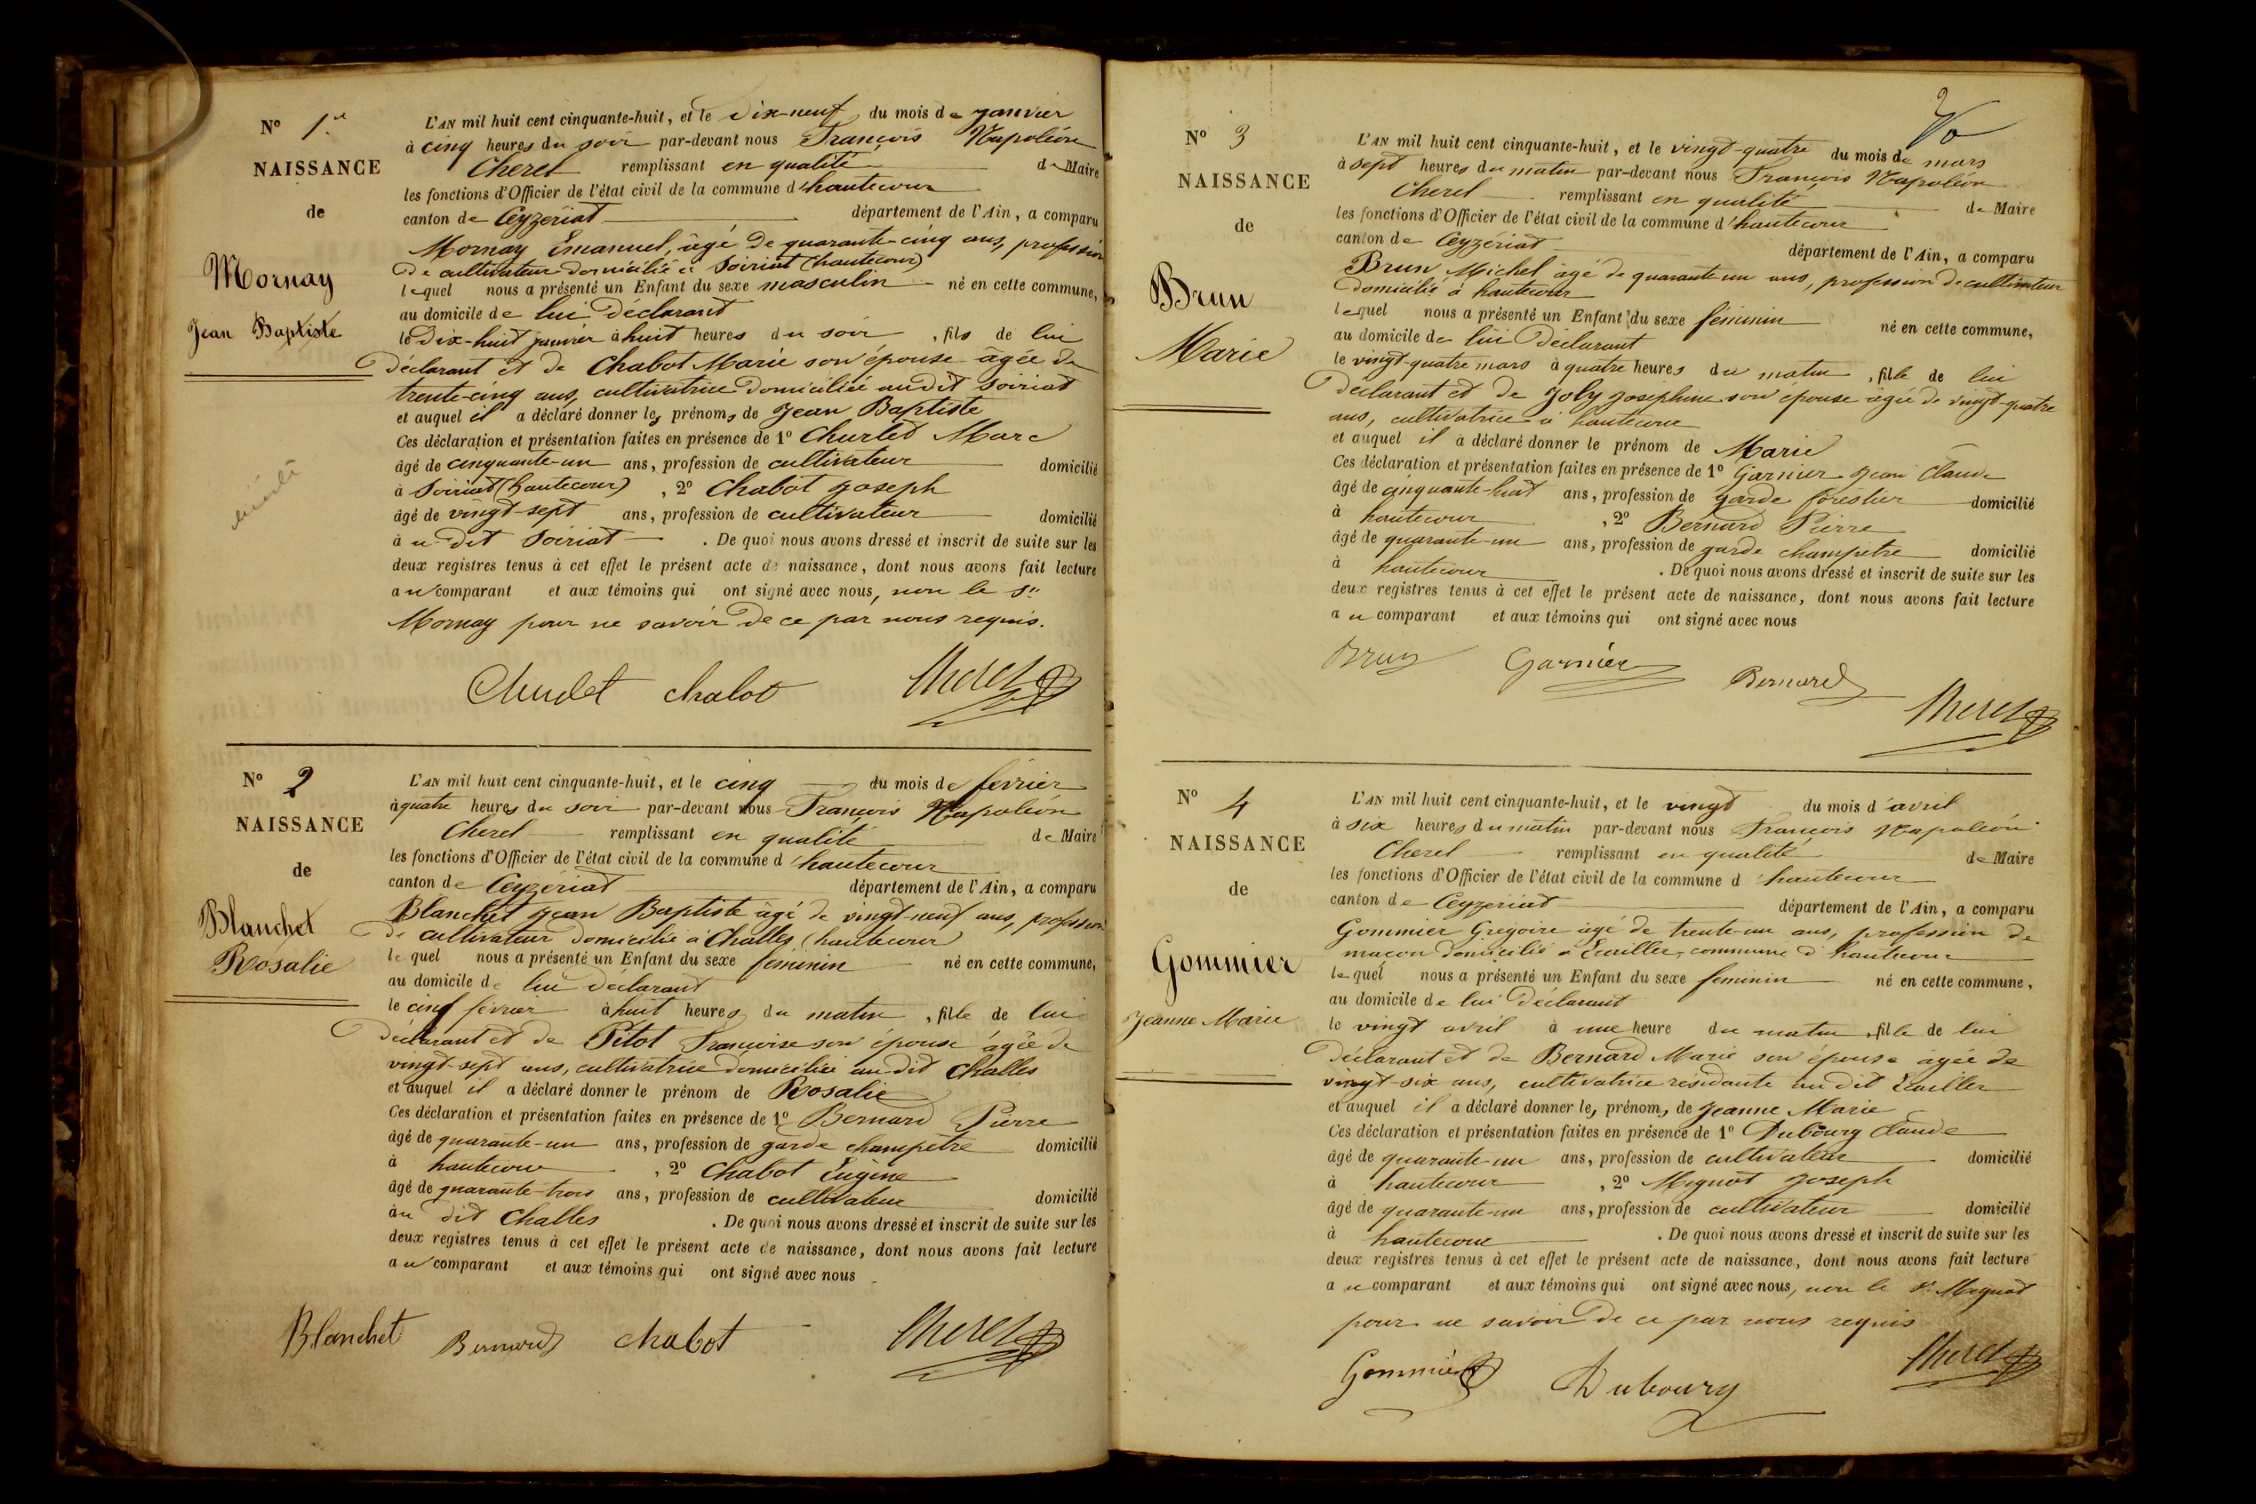 N° 1er
NAISSANCE
de
Mornay
Jean Baptiste
L'AN mil huit cent cinquante-huit, et le dix-neuf du mois de janvier
à cinq heures du soir par-devant nous François Napoléon
Cherel remplissant en qualité de Maire
les fonctions d'Officier de l'état civil de la commune d'hautecour
canton de Ceyzeriat département de l'Ain, a comparu
Mornay Emanuel, âgé de quarante-cinq ans, profession
de cultivateur domicilié à Soiriat (hautecour)
lequel nous a présenté un Enfant du sexe masculin né en cette commune,
au domicile de lui déclarant
le dix-huit janvier à huit heures du soir, fils de lui
déclarant et de Chabot Marie son épouse âgée de
trente-cinq ans, cultivatrice domiciliée audit Soiriat
et auquel il a déclaré donner les prénoms de Jean Baptiste
Ces déclaration et présentation faites en présence de 1° Churlet Marc
âgé de cinquante-un ans, profession de cultivateur domicilié
à Soiriat (hautecour), 2° Chabot Joseph
âgé de vingt-sept ans, profession de cultivateur domicilié
à u dit Soiriat. De quoi nous avons dressé et inscrit de suite sur les
deux registres tenus à cet effet le présent acte de naissance, dont nous avons fait lecture
au comparant et aux témoins qui ont signé avec nous, non le Sr
Mornay pour ne savoir de ce par nous requis.
chabot Cherel
N° 2
NAISSANCE
de
Blanchet
Rosalie
L'AN mil huit cent cinquante-huit, et le cinq du mois de février
à quatre heures du soir par-devant nous François Napoléon
Cherel remplissant en qualité de Maire
les fonctions d'Officier de l'état civil de la commune d'hautecour
canton de Ceyzériat département de l'Ain, a comparu
Blanchet Jean Baptiste âgé de vingt-neuf ans, profession
de cultivateur domicilié à Challes (hautecour
lequel nous a présenté un Enfant du sexe féminin né en cette commune,
au domicile de lui déclarant
le cinq février à huit heures du matin, fille de lui
déclarant et de Pitot Françoise son épouse âgée de
vingt-sept ans, cultivatrice domiciliée audit Challes
et auquel il a déclaré donner le prénom de Rosalie
Ces déclaration et présentation faites en présence de 1° Bernard Pierre
âgé de quarante-un ans, profession de garde champêtre domicilié
à hautecour, 2° Chabot Eugène
âgé de quarante-trois ans, profession de cultivateur domicilié
à u dit Challes. De quoi nous avons dressé et inscrit de suite sur les
deux registres tenus à cet effet le présent acte de naissance, dont nous avons fait lecture
au comparant et aux témoins qui ont signé avec nous
Blanchet Bernard chabot Cherel
2
N° 3
NAISSANCE
de
Brun
Marie
L'AN mil huit cent cinquante-huit, et le vingt-quatre du mois de mars
à sept heures du matin par-devant nous François Napoléon
Cherel remplissant en qualité de Maire
les fonctions d'Officier de l'état civil de la commune d'hautecour
canton de Ceyzériat département de l'Ain, a comparu
Brun Michel âgé de quarante-un ans, profession de cultivateur
domicilié à hautecour
lequel nous a présenté un Enfant du sexe féminin né en cette commune,
au domicile de lui déclarant
le vingt-quatre mars à quatre heures du matin, fille de lui
déclarant et de Joly Joséphine son épouse âgée de vingt-quatre
ans, cultivatrice à hautecour
et auquel il a déclaré donner le prénom de Marie
Ces déclaration et présentation faites en présence de 1° Garnier Jean Claude
âgé de cinquante-huit ans, profession de garde forestier domicilié
à hautecour, 2° Bernard Pierre
âgé de quarante-un ans, profession de garde champêtre domicilié
à hautecour. De quoi nous avons dressé et inscrit de suite sur les
deux registres tenus à cet effet le présent acte de naissance, dont nous avons fait lecture
au comparant et aux témoins qui ont signé avec nous
Brun Garnier Bernard Cherel
N° 4
NAISSANCE
de
Gommier
Jeanne Marie
L'AN mil huit cent cinquante-huit, et le vingt du mois d'avril
à six heures du matin par-devant nous François Napoléon
Cherel remplissant en qualité de Maire
les fonctions d'Officier de l'état civil de la commune d'hautecour
canton de Ceyzeriat département de l'Ain, a comparu
Gommier Gregoire âgé de trente-un ans, profession de
maçon domicilié à commune d'hautecour
lequel nous a présenté un Enfant du sexe féminin né en cette commune,
au domicile de lui déclarant
le vingt avril à une heure du matin, fille de lui
déclarant et de Bernard Marie son épouse âgée de
vingt-six ans, cultivatrice résidante au dit
et auquel il a déclaré donner les prénoms de Jeanne Marie
Ces déclaration et présentation faites en présence de 1° Dubourg Claude
âgé de quarante-un ans, profession de cultivateur domicilié
à hautecour, 2° Mignot Joseph
âgé de quarante-un ans, profession de cultivateur domicilié
à hautecour. De quoi nous avons dressé et inscrit de suite sur les
deux registres tenus à cet effet le présent acte de naissance, dont nous avons fait lecture
au comparant et aux témoins qui ont signé avec nous, non le Sr Mignot
pour ne savoir de ce par nous requis
Gommier Dubourg Cherel